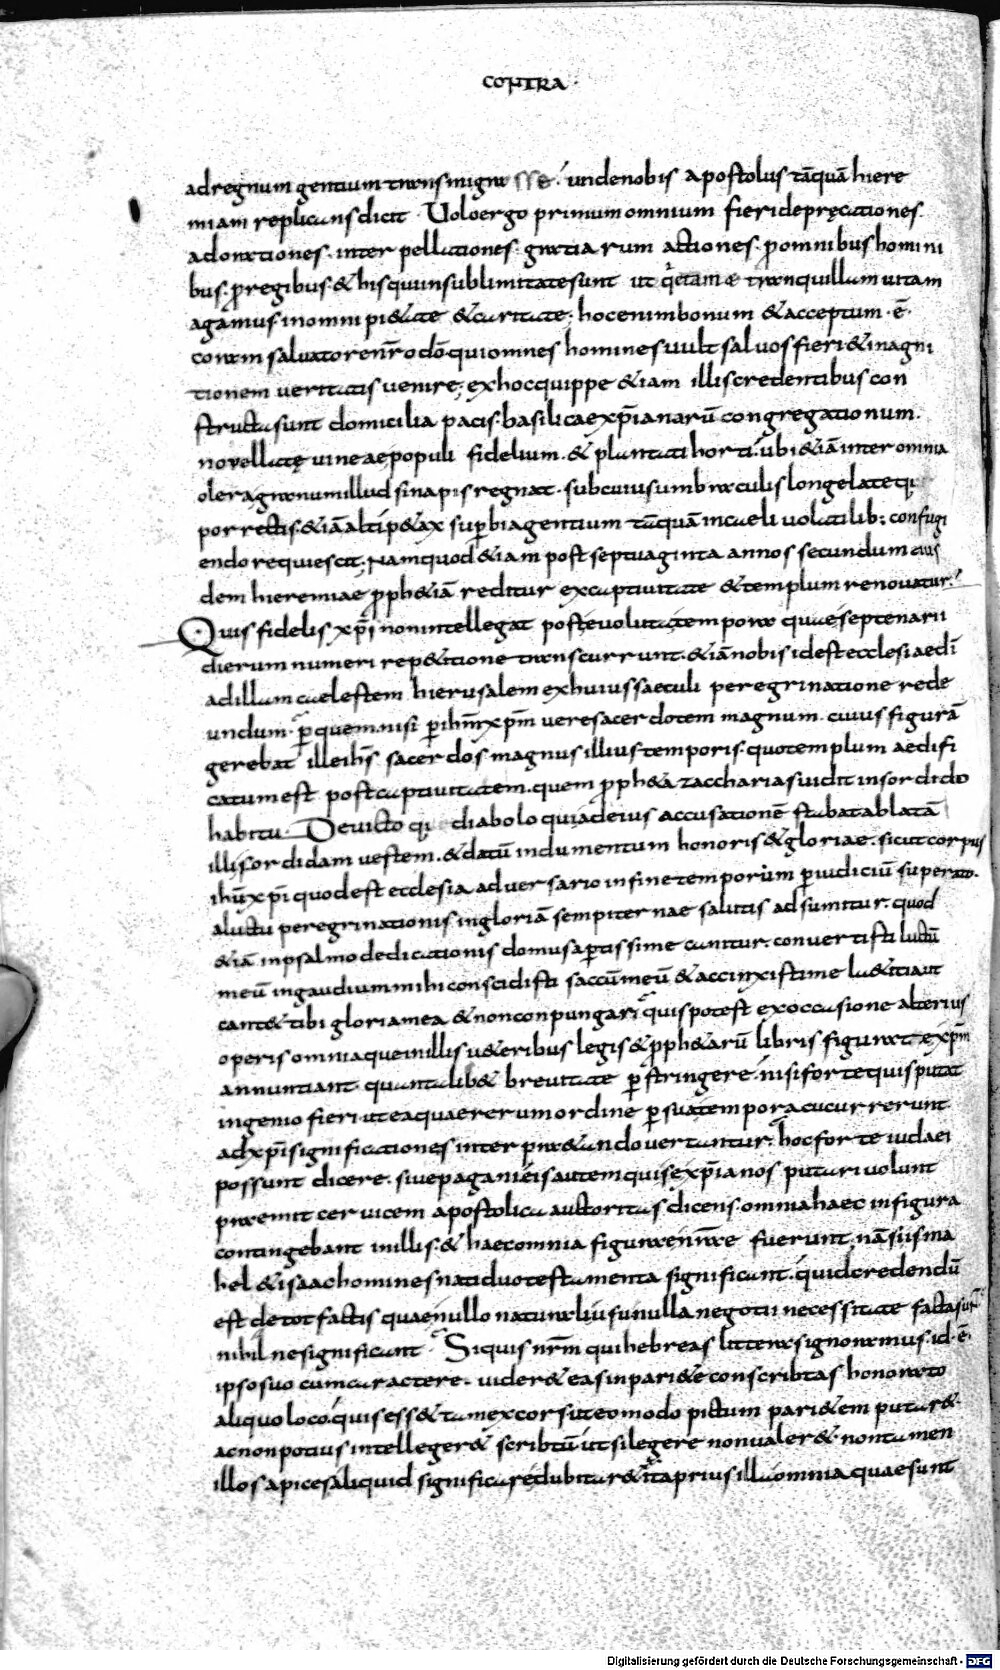 CONTRA
ad regnum gentium transmigrasse. unde nobis apostolus tāquā hiere
miam replicans dicit. Uolo ergo primum omnium fieri depręcationes
adorationes. interpellationes. gratiarum actiones. p omnibus homini
bus. p regibus. & his qui in sublimitate sunt ut q&iam & tranquillam uitam
agamus. in omni pi&ate & caritate; hoc enim bonum & acceptum. ē.
coram saluatore nr̄o dō qui omnes homines uult saluos fieri & in agni
tionem ueritatis uenire; ex hoc quippe &iam illis credentibus con
structa sunt domicilia pacis. basilicae xp̄ianarū congregationum.
nouellatę uineae populi fidelium. & plantati horti. ubi &iā inter omnia
olera granum illud sinapis regnat. sub cuius umbraculis longe lateq
porrectis. &iā altip&ax superbia gentium tāquā in caeli uolatilib; confugi
endo requiescit; Nam quod &iam post septuaginta annos secundum eius
dem hieremiae proph&iā reditur ex captiuitate & templum renouatur.
Quis fidelis xp̄i non intellegat post euoluta tempora quae septenarii
dierum numeri rep&itione transcurrunt. &iā nobis id est ecclesiae dī
ad illam caelestem hierusalem ex huius saeculi peregrinatione rede
undum. p quem nisi p ihm̄ xpm̄ uere sacerdotem magnum. cuius figurā
gerebat ille ihs̄ sacerdos magnus illius temporis. quo templum aedifi
catum est post captiuitatem. quem proph&a zaccharias uidit in sordido
habitu. Deuicto q diabolo qui ad eius accusationē stabat ablatā
illi sordidam uestem. & datū indumentum honoris & gloriae. sicut corpus
ihū xp̄i quod est ecclesia aduersario in fine temporum p iudiciū superato.
a luctu peregrinationis in gloriā sempiternae salutis adsumitur. quod
&iā in psalmo dedicationis domus apertissime canitur. conuertisti luctū
meū in gaudium mihi conscidisti saccū meū & accinxisti me l&itia ut
cant& tibi gloria mea & non conpungar; quis potest ex occasione alterius
operis omnia que in illis u&eribus legis & pph&arū libris figurat & xpm̄
annuntiant. quantalib& breuitate pstringere. nisi forte quis putat
ingenio fieri ut ea quae rerum ordine p sua tempora cucurrerunt
ad xp̄i significationes interpr&ando uertantur. hoc forte iudaei
possunt dicere. siue pagani eis autem qui se xp̄ianos putari uolunt
praemit ceruicem apostolica auctoritas dicens. omnia haec in figura
contingebant in illis. & haec omnia figurae nrae fuerunt. nā si isma
hel & isaac homines nati duo testamenta significant. quid credendū
est de tot factis quae nullo naturali usu nulla negotii necessitate facta s̄
nihil ne significant. Si quis nrm̄ qui hebreas litteras ignoramus. id. ē.
ipso suo cum caractere. uider& eas in pari&e conscribtas honorato
aliquo loco. quis ess& tam excors ut eo modo pictum pari&em putar&.
ac non potius intelleger& scribtū ut si legere non ualer&. non tamen
illos apices aliquid significare dubitar& ita prius illa omnia quae sunt
Digitalisierung gefördert durch die Deutsche Forschungsgemeinschaft - DFG